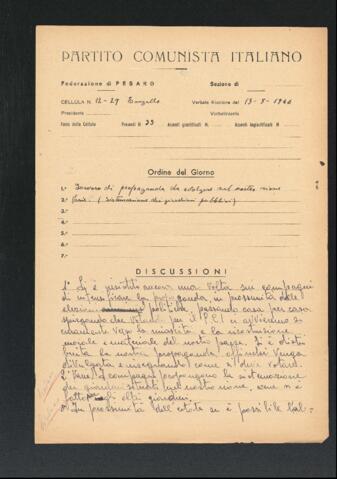 PARTITO COMUNISTA ITALIANO
Federazione di PESARO Sezione di
CELLULA N. 12-27 Verbale Riunione del 13-5-1946
Presidente Verbalizzante
Forza della Cellula Presenti N. 33 Assenti giustificati N. Assenti ingiustificati N.
Ordine del Giorno
1.° Lavoro di propaganda da svolgere nel nostro rione
2.° Varie. (sistemazione dei giardini pubblici)
3.°
4.°
5.°
6.°
7.°
DISCUSSIONI
1° Si è insistito ancora una volta sui compagni
di intensificare la propaganda, in prossimità delle
elezioni politiche, passando casa per casa
spiegando che votando per il P.C.I. si avviano si-
curamente verso la rinascita e la ricostruzione
morale e materiale del nostro paese. Si è distri
buita la nostra propaganda affinché venga
divulgata e insegnando come si deve votare.
2° Vari compagni propongono la sistemazione
dei giardini situati nel nostro rione, come si è
fatto agli altri giardini.
In prossimità dell'estate se è possibile l'al-